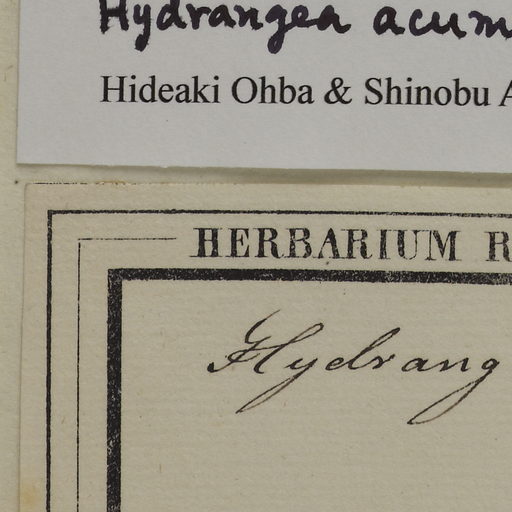 Hydrangea acum
Hideaki Ohba & Shinobu A
HERBARIUM R
Hydrang